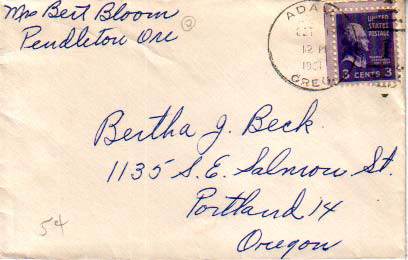 Mrs Bert Bloom
Pendleton Ore
2
ADA
OCT
12 M
195
OREG
UNITED
STATES
POSTAGE
3 CENTS 3
Bertha J. Beck.
1135 S.E. Salmon St.
Portland 14
Oregon
54